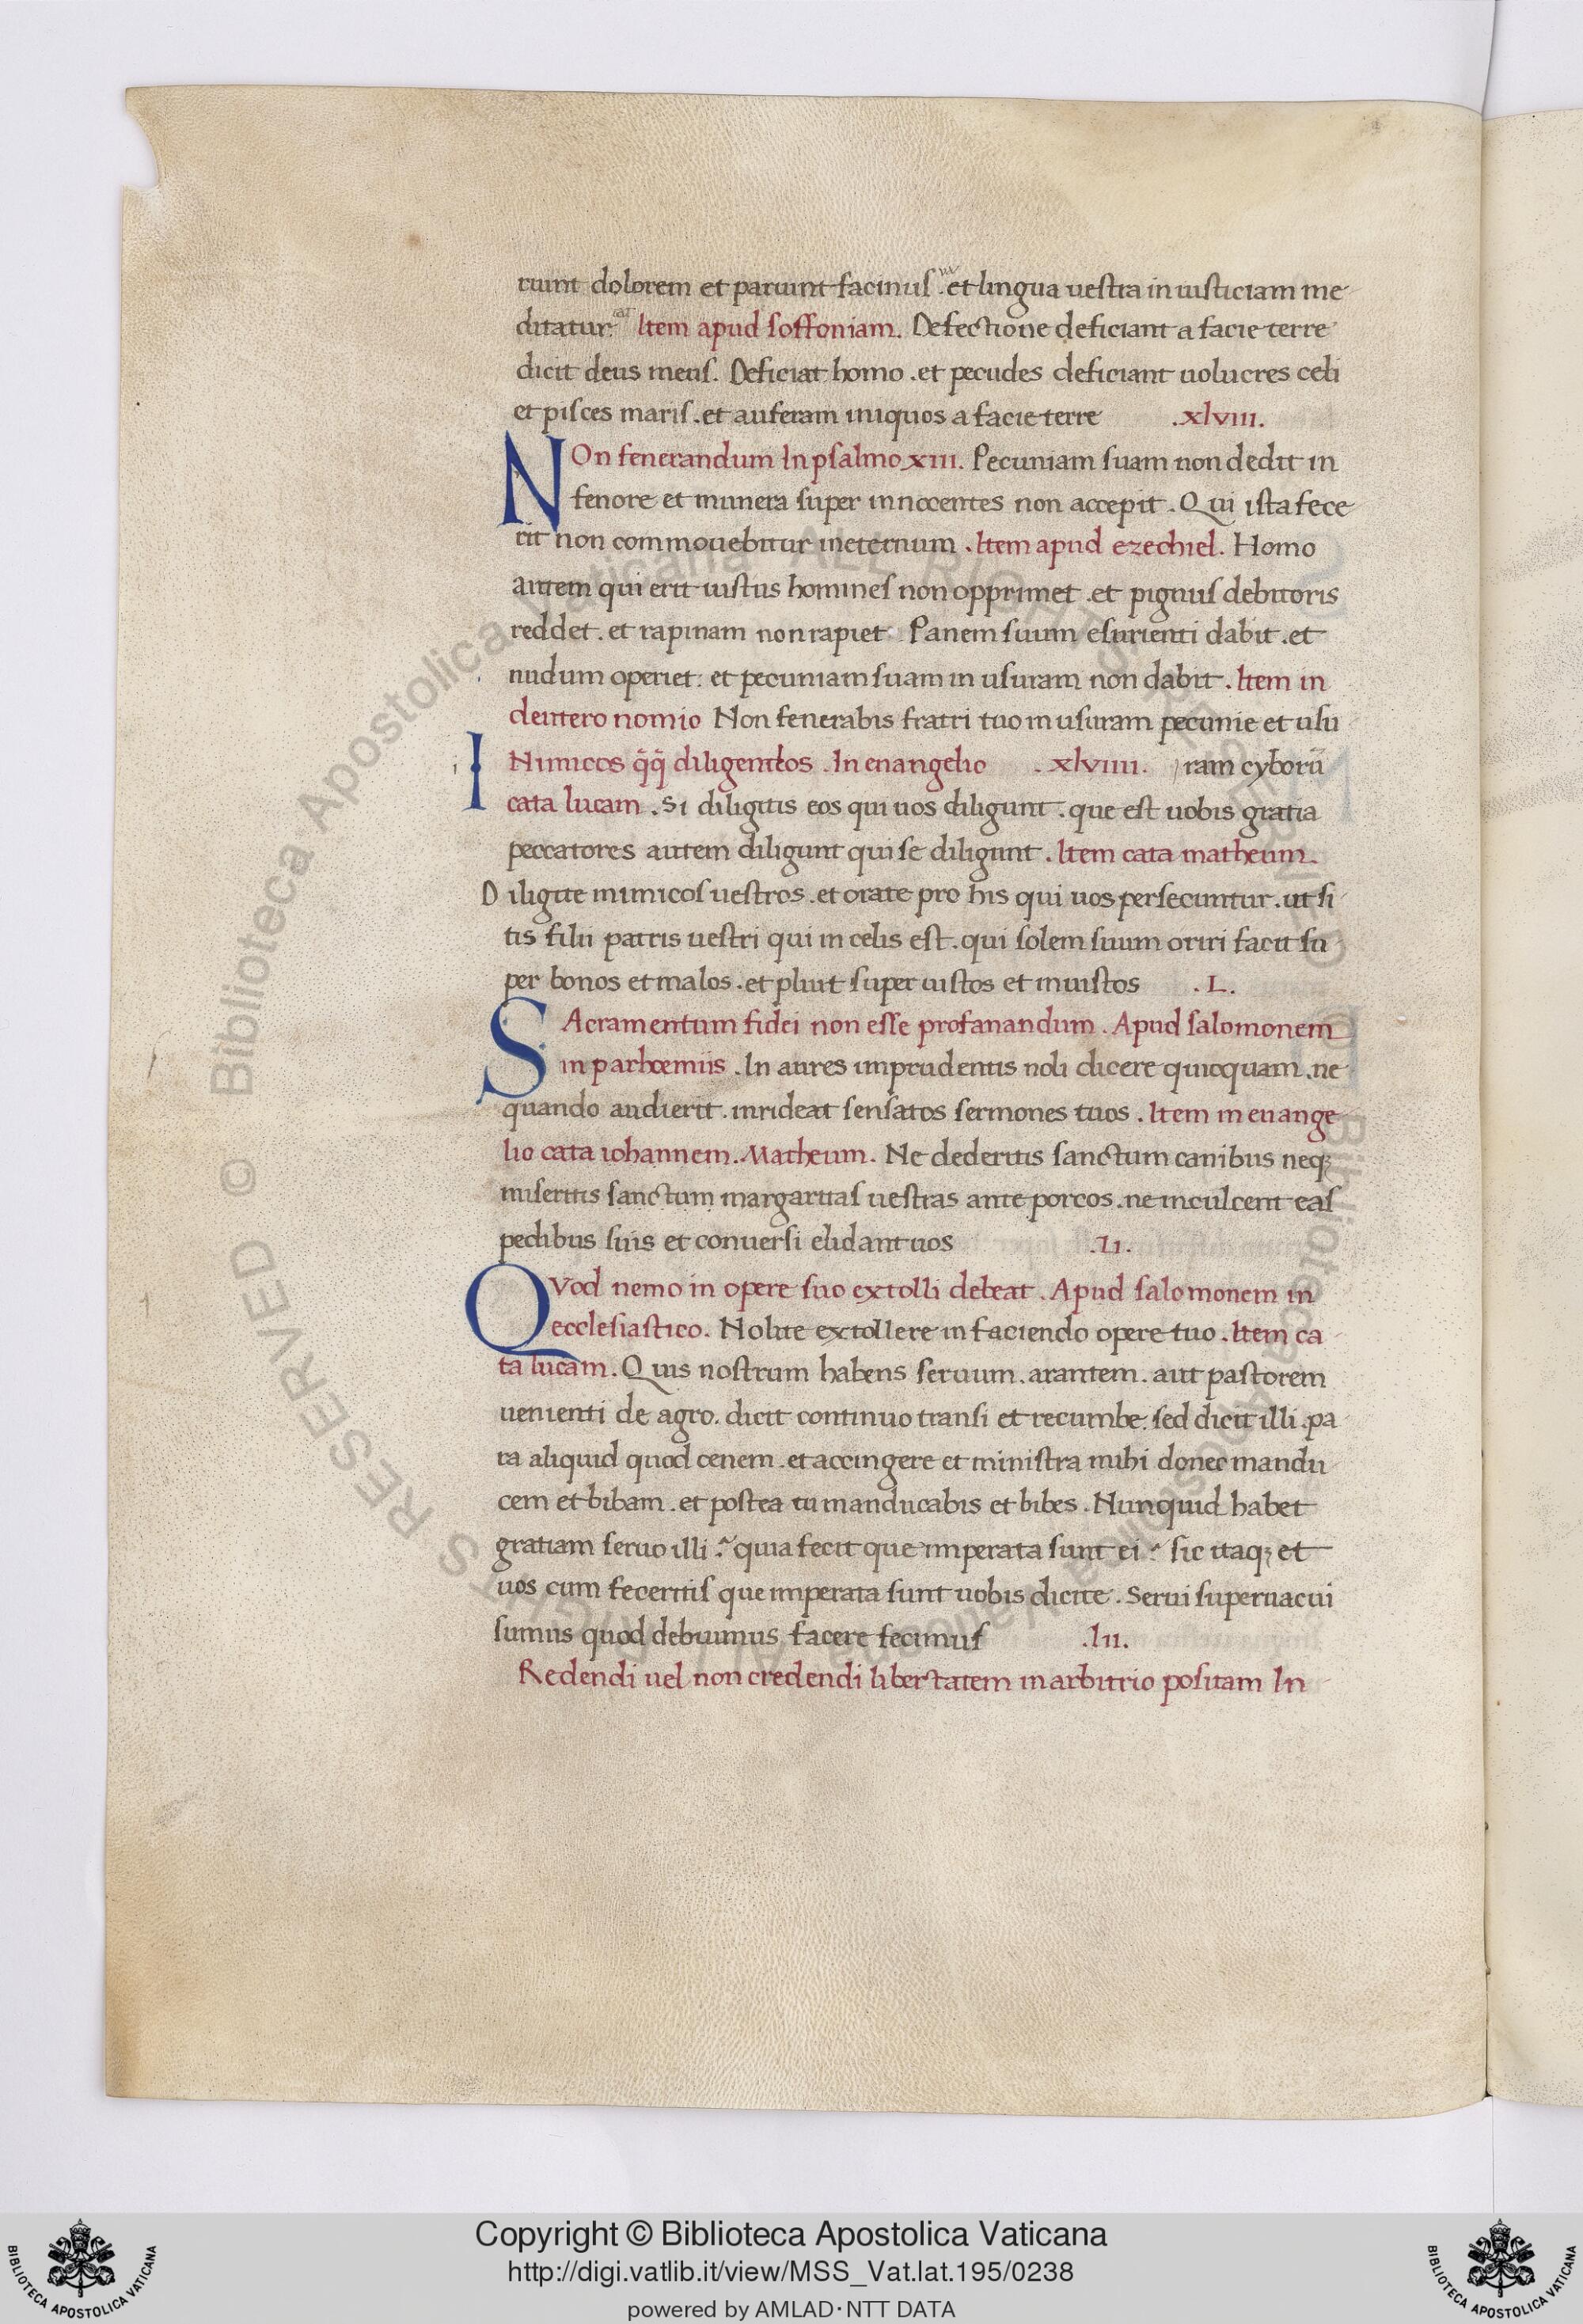 runt dolorem et pariunt facinus .et lingua uestra iniusticiam me
ditatur. Item apud soffoniam. Defectione deficiant a facie terre
dicit deus meus. Deficiat homo .et pecudes deficiant uolucres celi
et pisces maris .et auferam iniquos a facie terre .xlviii.
NOn fenerandum In psalmo xiii. Pecuniam suam non dedit in
fenore et munera super innocentes non accepit . Qui ista fece
rit non commouebitur ineternum . Item apud ezechiel. Homo
autem qui erit iustus homines non opprimet .et pignus debitoris
reddet . et rapinam non rapiet. Panem suum esurienti dabit .et
nudum operiet: et pecuniam suam in usuram non dabit . Item in
deuteronomio Non fenerabis fratri tuo in usuram pecunie et usu
INimicos q̄q̄ diligendos . In euangelio . xlviiii. ram cyborū
cata lucam . Si diligitis eos qui uos diligunt . que est uobis gratia
peccatores autem diligunt qui se diligunt . Item cata matheum.
Diligite inimicos uestros .et orate pro his qui uos persecuntur .ut si
tis filii patris uestri qui in celis est .qui solem suum oriri facit su
per bonos et malos .et pluit super iustos et iniustos . L.
SAcramentum fidei non esse profanandum . Apud salomonem
in parhoemiis . In aures imprudentis noli dicere quicquam .ne
quando audierit .inrideat sensatos sermones tuos . Item in euange
lio cata iohannem. Matheum. Ne dederitis sanctum canibus neq;
miseritis sanctum margaritas uestras ante porcos .ne inculcent eas
pedibus suis et conuersi elidant uos .Li.
QVod nemo in opere suo extolli debeat . Apud salomonem in
ecclesiastico. Nolite extollere in faciendo opere tuo . Item ca
ta lucam . Quis nostrum habens seruum .arantem .aut pastorem
uenienti de agro. dicit continuo transi et recumbe. sed dicit illi .pa
ra aliquid quod cenem .et accingere et ministra mihi donec mandu
cem et bibam .et postea tu manducabis et bibes . Nunquid habet
gratiam seruo illi ? quia fecit que imperata sunt ei ? sic itaq; et
uos cum feceritis que imperata sunt uobis dicite . Serui superuacui
sumus quod debuimus facere fecimus .lii.
Redendi uel non credendi libertatem in arbitrio positam In
© Biblioteca Apostolica Vaticana ALL RIGHTS RESERVED
Copyright © Biblioteca Apostolica Vaticana
http://digi.vatlib.it/view/MSS_Vat.lat.195/0238
powered by AMLAD·NTT DATA
BIBLIOTECA APOSTOLICA VATICANA
BIBLIOTECA APOSTOLICA VATICANA